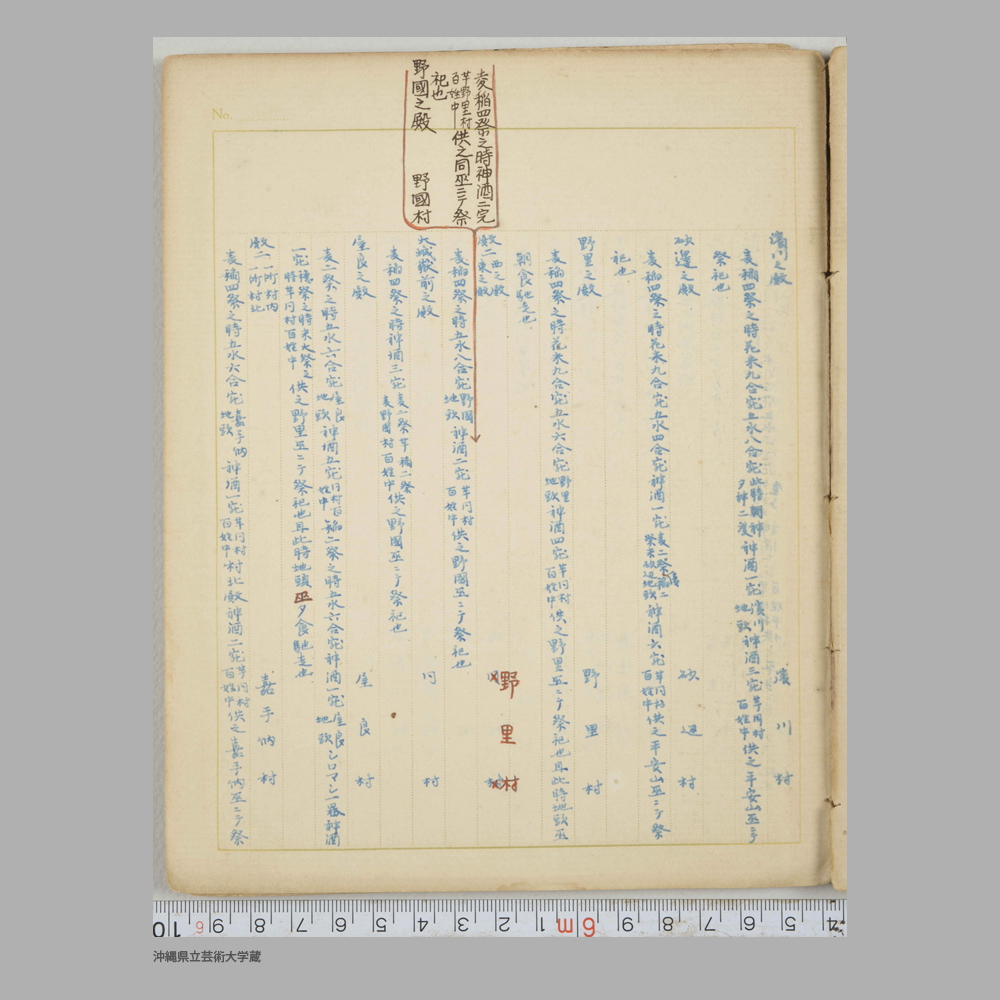 麦稲四祭之時神酒二宛
芋野里村百姓中供之同巫ニテ祭
祀也
野國之殿　野國村
No.
濱川之殿　濱川村
麦稲四祭之時花米九合宛五水八合宛此時朝神夕神二度神酒一宛濱川地頭神酒三宛芋同村百姓中供之平安山巫ニテ
祭祀也
砂邊之殿　砂辺村
麦稲四祭之時花米九合宛五水四合宛神酒一宛麦二祭稲二祭米砂辺地頭神酒六宛芋同村百姓中供之平安山巫ニテ祭
祀也
野里之殿　野里村
麦稲四祭之時花米九合宛五水六合宛野里地頭神酒四宛芋同村百姓中供之野里巫ニテ祭祀也且此時地頭巫
朝食馳走也
殿二西之殿東之殿　野里村
麦稲四祭之時五水八合宛野國地頭神酒二宛芋同村百姓中供之野國巫ニテ祭祀也
大城嶽前之殿　同村
麦稲四祭之時神酒三宛麦二祭芋稲二祭麦野國村百姓中供之野國巫ニテ祭祀也
屋良之殿　屋良村
麦二祭之時五水六合宛屋良地頭神酒五宛同村百姓中稲二祭之時五水六合宛神酒一宛屋良地頭シロマシ一器神酒
一宛穂祭之時米大祭之時芋同村百姓中供之野里巫ニテ祭祀也且此時地頭巫夕食馳走也
殿二一所村内一所村北　嘉手納村
麦稲四祭之時五水六合宛嘉手納地頭神酒一宛芋同村百姓中村北殿神酒二宛芋同村百姓中供之嘉手納巫ニテ祭
10 6 9 8 7 6 5 4 3 2 1 6m 9 8 7 6 5 4
沖縄県立芸術大学蔵